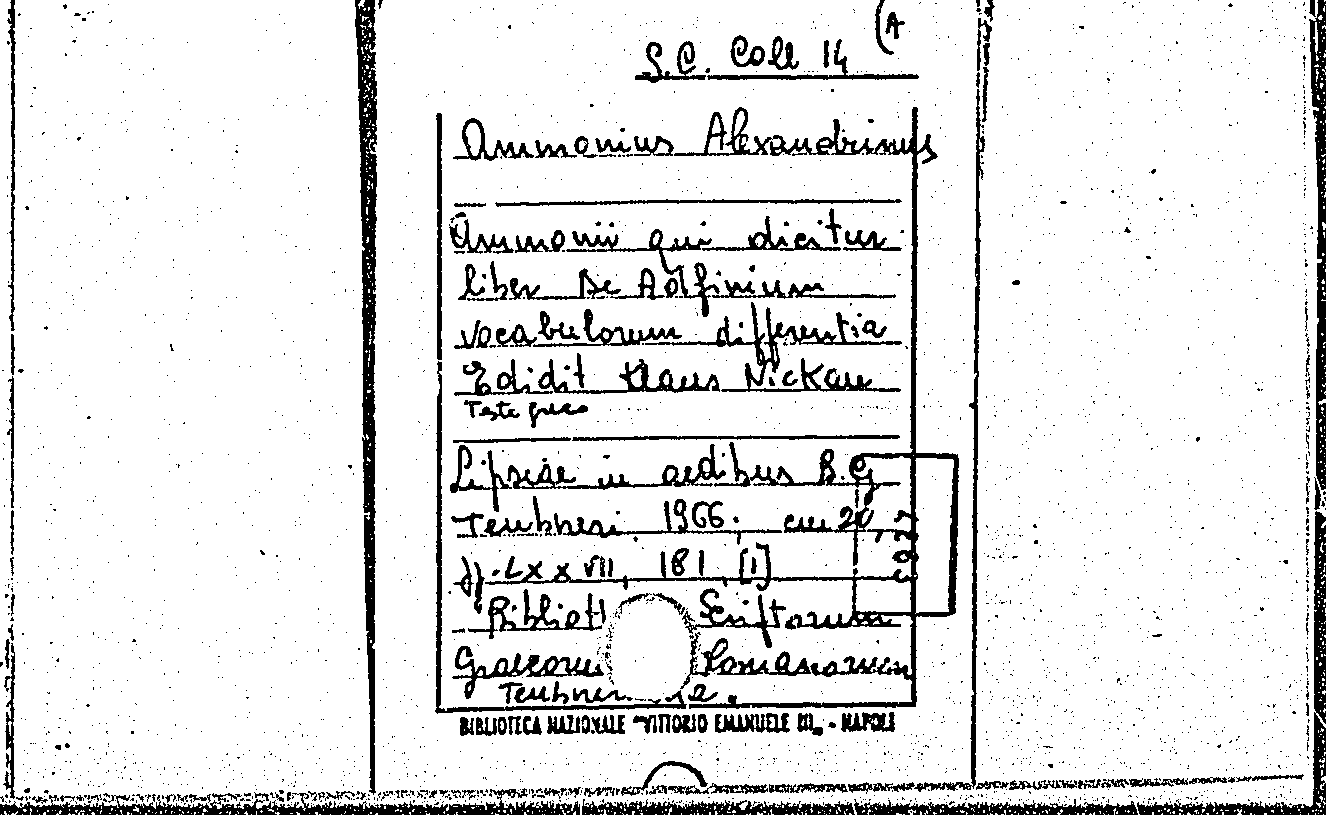 (A
S.C. Coll 14
Ammonius Alexandrinus
Ammonii qui dicitur
liber De Adfinium
vocabulorum differentia
Edidit Klaus Nickau
Testo greco
Lipsiae in aedibus B.G.
Teubneri 1966. cm 20,
pp. LXXVII, 181, [1]
Bibliot Scriptorum
Graecoru Romanorum
Teubner
BIBLIOTECA NAZIONALE "VITTORIO EMANUELE III" - NAPOLI